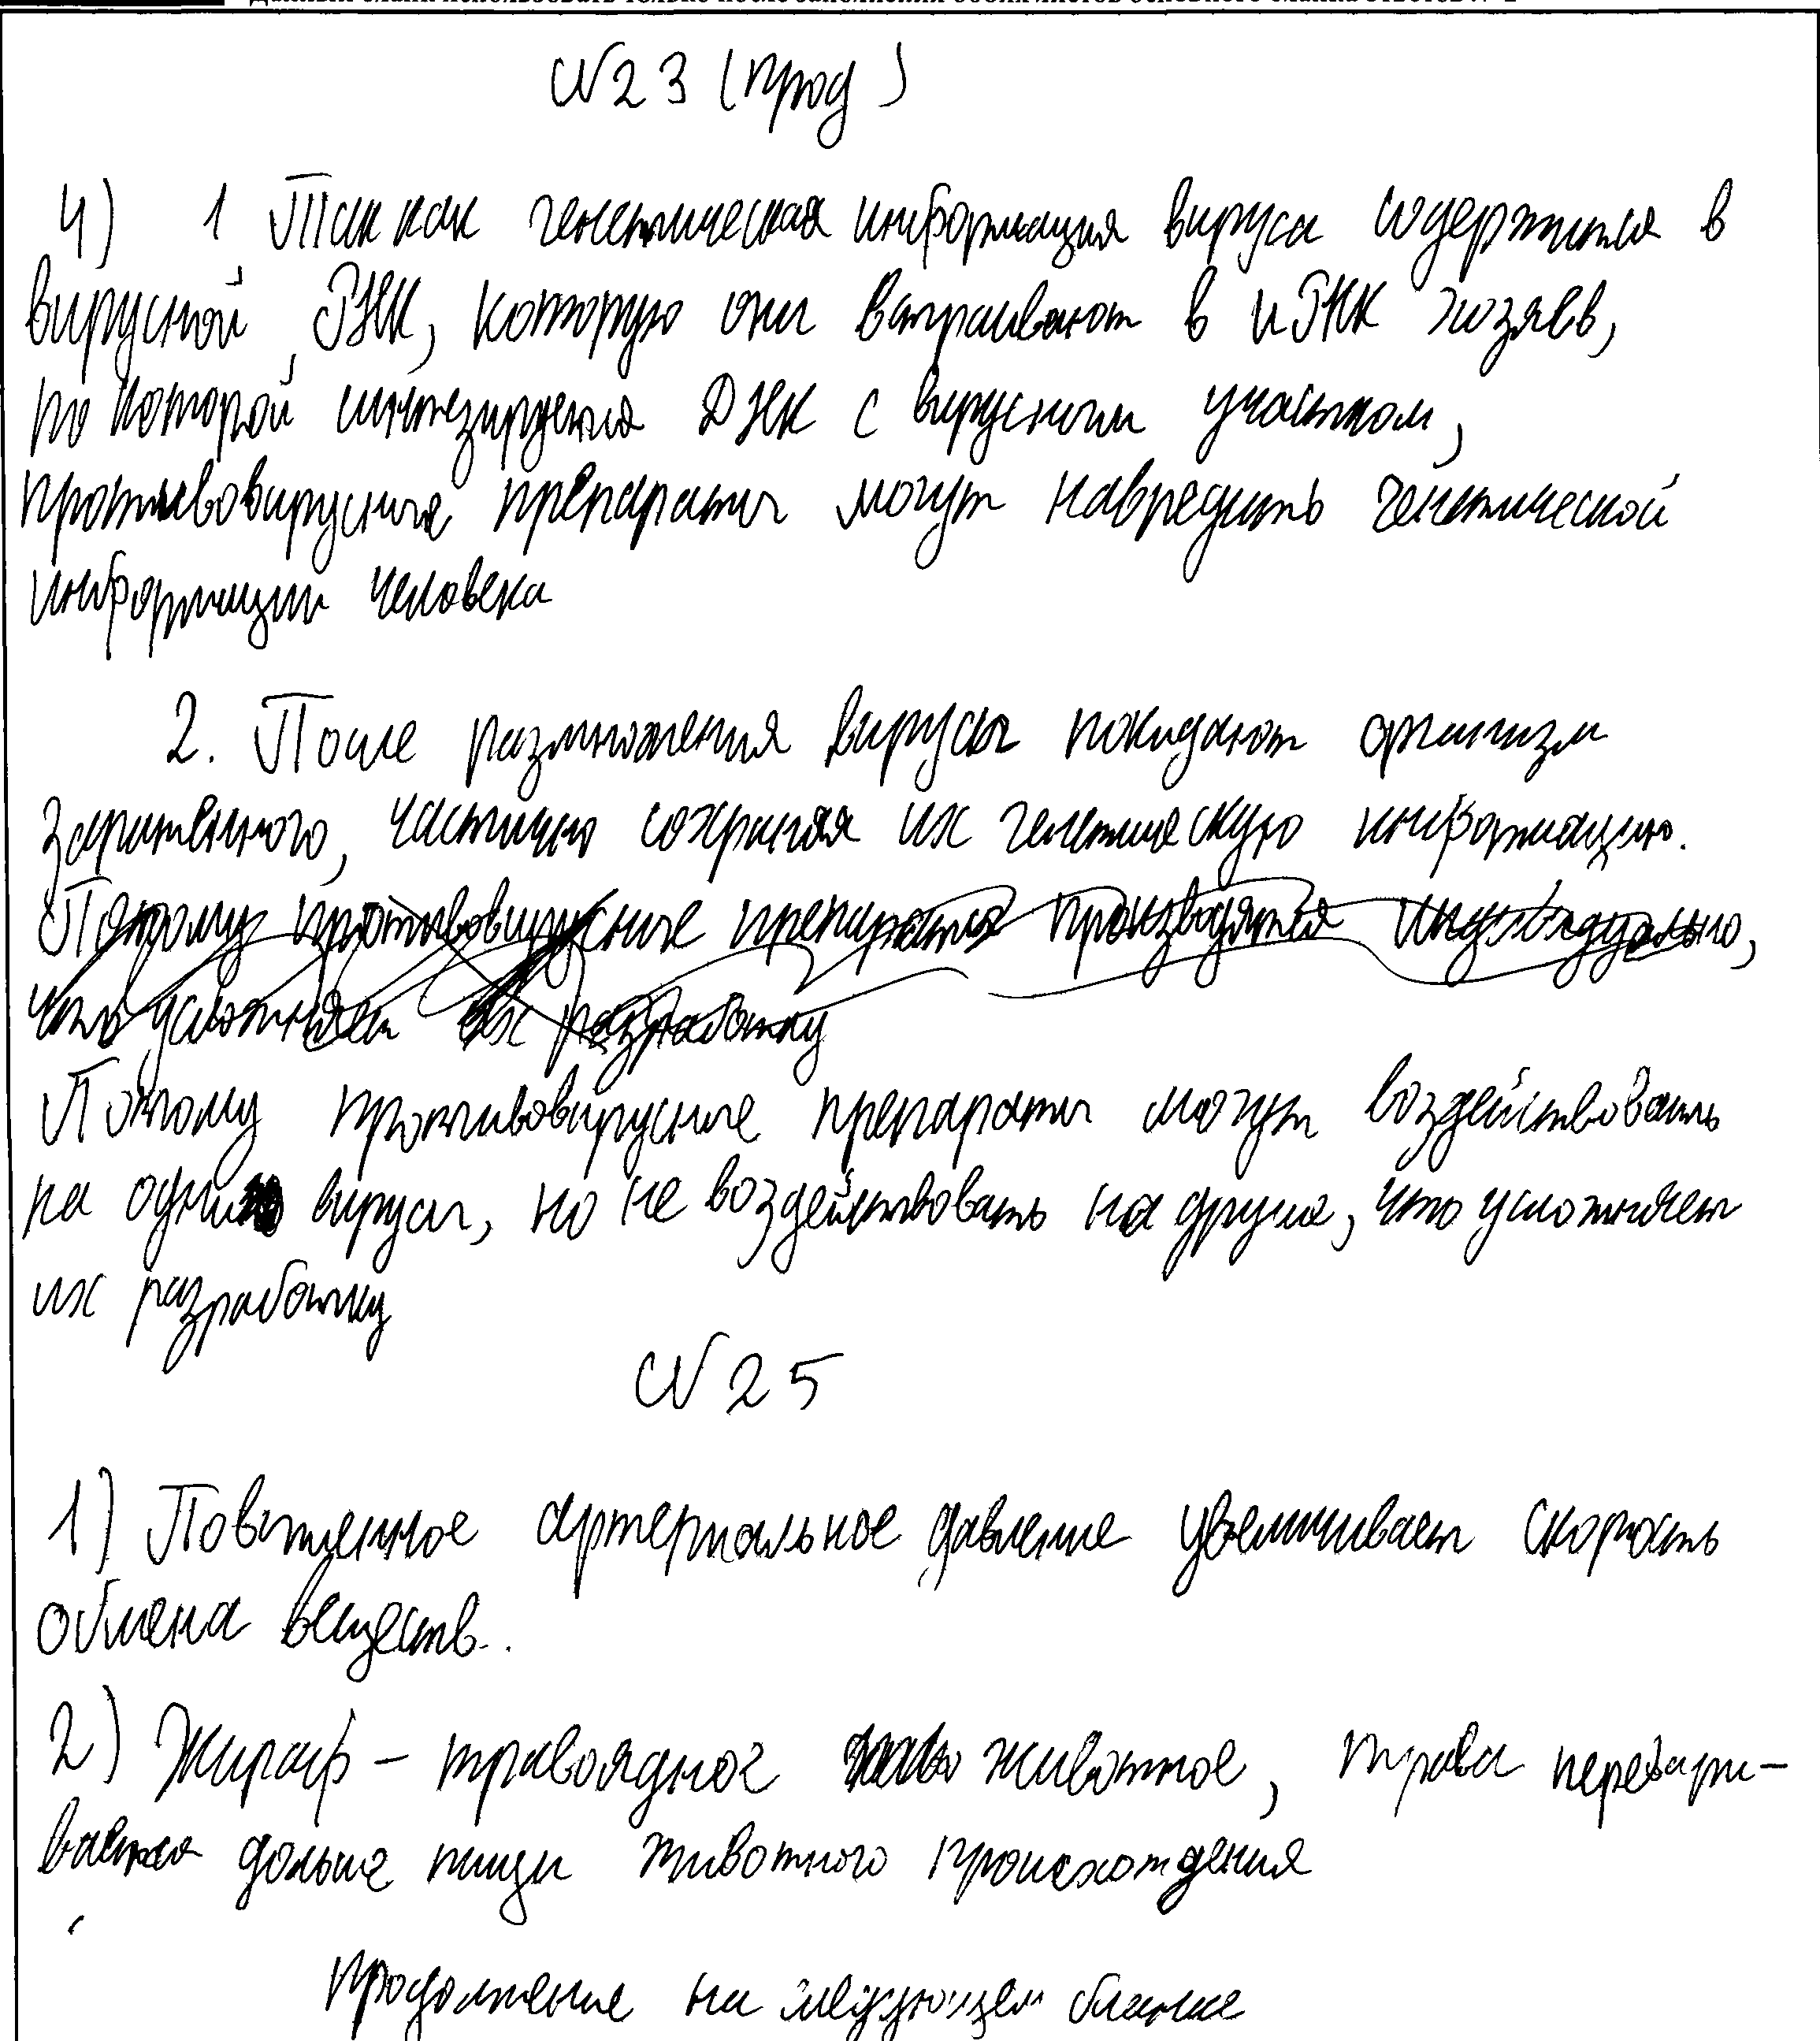 Данный бланк использовать только после заполнения обоих листов основного бланка ответов № 2
№23 (прод)
4) 1 Так как генетическая информация вируса содержится в
вирусной РНК, которую они встраивают в иРНК хозяев,
по которой синтезируется ДНК с вирусным участком,
противовирусные препараты могут навредить генетической
информации человека
2. После размножения вирусы покидают организм
заражённого, частично сохраняя их генетическую информацию.
Поэтому противовирусные препараты производятся индивидуально,
что усложняет их разработку
Поэтому противовирусные препараты могут воздействовать
на одни вирусы, но не воздействовать на другие, что усложняет
их разработку
№25
1) Повышенное артериальное давление увеличивает скорость
обмена веществ.
2) Жираф – травоядное животное, трава перевари-
вается дольше пищи животного происхождения
продолжение на следующем бланке